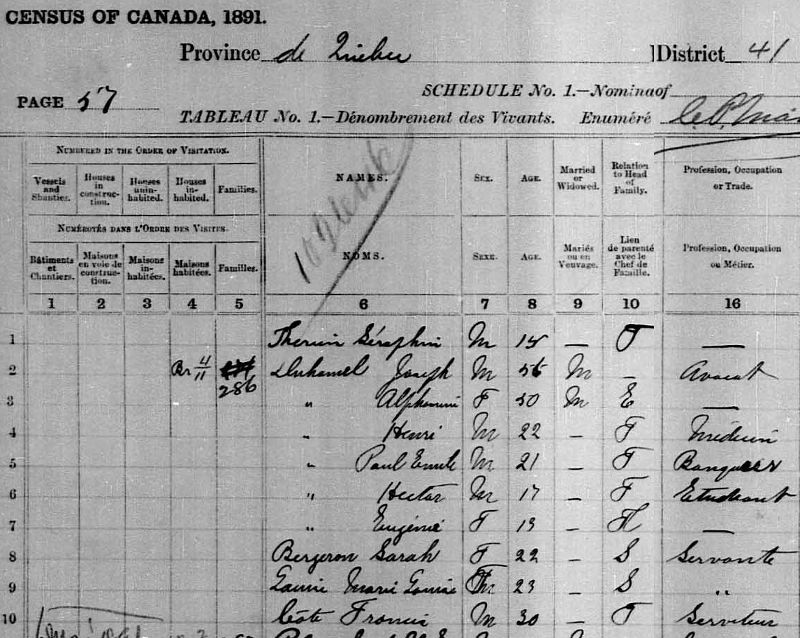 CENSUS OF CANADA, 1891.
Province de Quebec District 41
PAGE 57 SCHEDULE No. 1.—Nominal of
TABLEAU No. 1.—Dénombrement des Vivants. Enuméré
NUMBERED IN THE ORDER OF VISITATION.
Vessels and Shanties. Houses in construction. Houses uninhabited. Houses inhabited. Families. NAMES. SEX. AGE. Married or Widowed. Relation to Head of Family. Profession, Occupation or Trade.
NUMÉROTÉS DANS L'ORDRE DES VISITES.
Bâtiments et Chantiers. Maisons en voie de construction. Maisons inhabitées. Maisons habitées. Familles. NOMS. SEXE. AGE. Mariés ou en Veuvage. Lien de parenté avec le Chef de Famille. Profession, Occupation ou Métier.
1 2 3 4 5 6 7 8 9 10 16
1 Séraphin M — F —
2 Br 4/11 286 Duhamel Joseph M 56 M — Avocat
3 " F 50 M E —
4 " Henri M 22 — F Médecin
5 " Paul Emile M 21 — F Banquier
6 " Hector M 17 — F Etudiant
7 " Eugénie F — —
8 Bergeron Sarah F 22 — S Servante
9 Marie Louise 23 — S "
10 Côté Francis M 30 — Serviteur